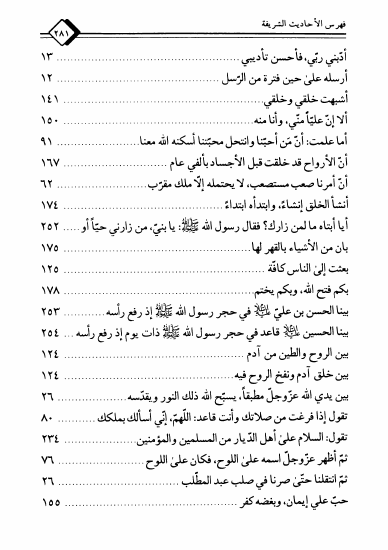 فهرس الأحاديث الشريفة
٢٨١
أدّبني ربّي، فأحسن تأديبي ........ ١٣
أرسله على حين فترة من الرّسل ........ ١٢
أشبهت خلقي وخلقي ........ ١٤١
ألا إنّ عليّاً منّي، وأنا منه ........ ١٥٠
أما علمت: أنّ مَن أحبّنا وانتحل محبّتنا أسكنه الله معنا ........ ٩١
أنّ الأرواح قد خلقت قبل الأجساد بألفي عام ........ ١٦٧
أنّ أمرنا صعب مستصعب، لا يحتمله إلّا ملك مقرّب ........ ٦٢
أنشأ الخلق إنشاءً، وابتدأه ابتداءً ........ ١٧٤
أيا أبتاه ما لمن زارك؟ فقال رسول الله ﷺ: يا بنيّ، من زارني حيّاً أو ..... ٢٥٢
بان من الأشياء بالقهر لها ........ ١٧٥
بعثت إلى الناس كافّة ........ ١٢٥
بكم فتح الله، وبكم يختم ........ ١٧٨
بينا الحسن بن عليّ في حجر رسول الله ﷺ إذ رفع رأسه ........ ٢٥٣
بينا الحسين قاعد في حجر رسول الله ﷺ ذات يوم إذ رفع رأسه ..... ٢٥٤
بين الروح والطين من آدم ........ ١٢٤
بين خلق آدم ونفخ الروح فيه ........ ١٢٤
بين يدي الله عزوجلّ مطبقاً، يسبّح الله ذلك النور ويقدّسه ........ ٢٦
تقول إذا فرغت من صلاتك وأنت قاعد: اللّهمّ، إنّي أسألك بملكك ..... ٨٠
تقول: السلام على أهل الدّيار من المسلمين والمؤمنين ........ ٢٣٤
ثمّ أظهر عزّوجلّ اسمه على اللوح، فكان على اللوح ........ ٧٦
ثمّ انتقلنا حتّى صرنا في صلب عبد المطّلب ........ ٢٦
حبّ علي إيمان، وبغضه كفر ........ ١٥٥